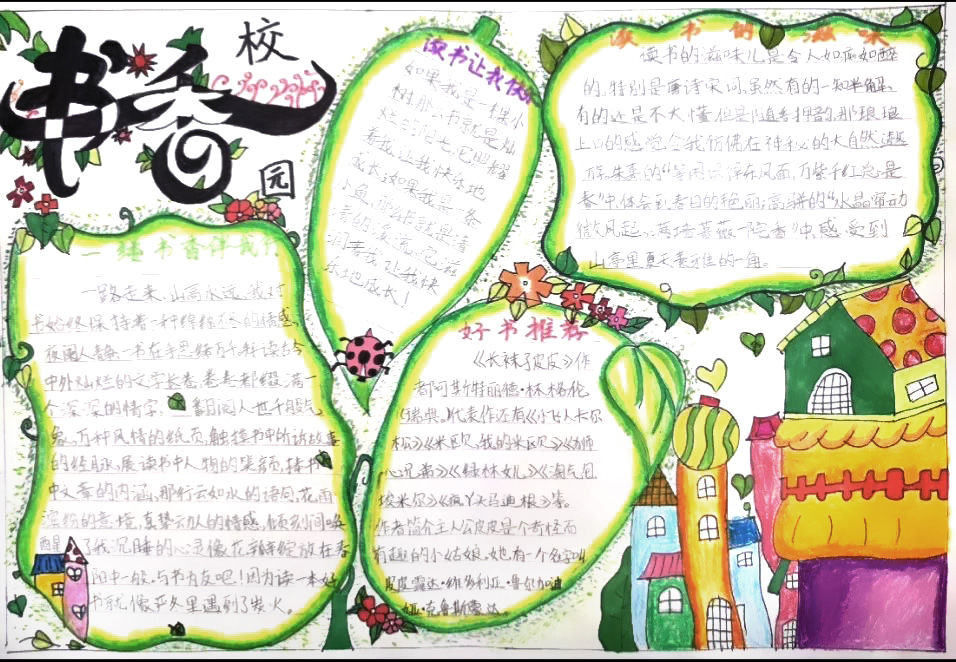 书香
校
园
一缕书香伴我行
一路走来,山高水远,我对
书始终保持着一种绵绵不尽的情感。
夜阑人静,一书在手,思绪万千,细读古今
中外灿烂的文字长卷,卷卷都缀满一
个深深的情字,翻阅人世千般气
象,万种风情的纸页,触摸书中所诉故事
的经脉,展读书中人物的笑颜,接书
中文章的内涵,那行云如水的语同,花雨
缤纷的意境,真挚动人的情感,倾刻间唤
醒了我沉睡的心灵,像花瓣绽放在春
阳中一般。与书为友吧!因为读一本好
书就像严冬里遇到了炭火。
读书让我快
如果我是一棵小
树,那么书就是灿
烂
着我,让我快乐地
成长;如果我是一条
小鱼,那么书就是清
清的溪流,它滋
润着我,让我快
乐地成长!
读书的滋味
读书的滋味儿是令人如痴如醉
的,特别是唐诗宋词,虽然有的一知半解,
有的还是不大懂,但是随着押韵,那琅琅
上口的感觉会我仿佛在神秘的大自然遨
游。朱熹的“等闲识得东风面,万紫千红总是
春”中,体会到春日的艳丽;高骈的“水晶帘动
微风起,满架蔷薇一院香”中,感受到
山亭里夏天最雅的一角。
好书推荐
《长袜子皮皮》作
者阿斯特丽德·林格伦
(瑞典)。代表作还有《小飞人卡尔
松》《米欧,我的米欧》《狮
心兄弟》《绿林女儿》《淘气包
埃米尔》《疯丫头马迪根》等。
作者简介主人公皮皮是个奇怪而
有趣的小姑娘,她有一个名字叫
皮皮露达·维多利亚·鲁尔加迪
娅·克鲁斯蒙达。